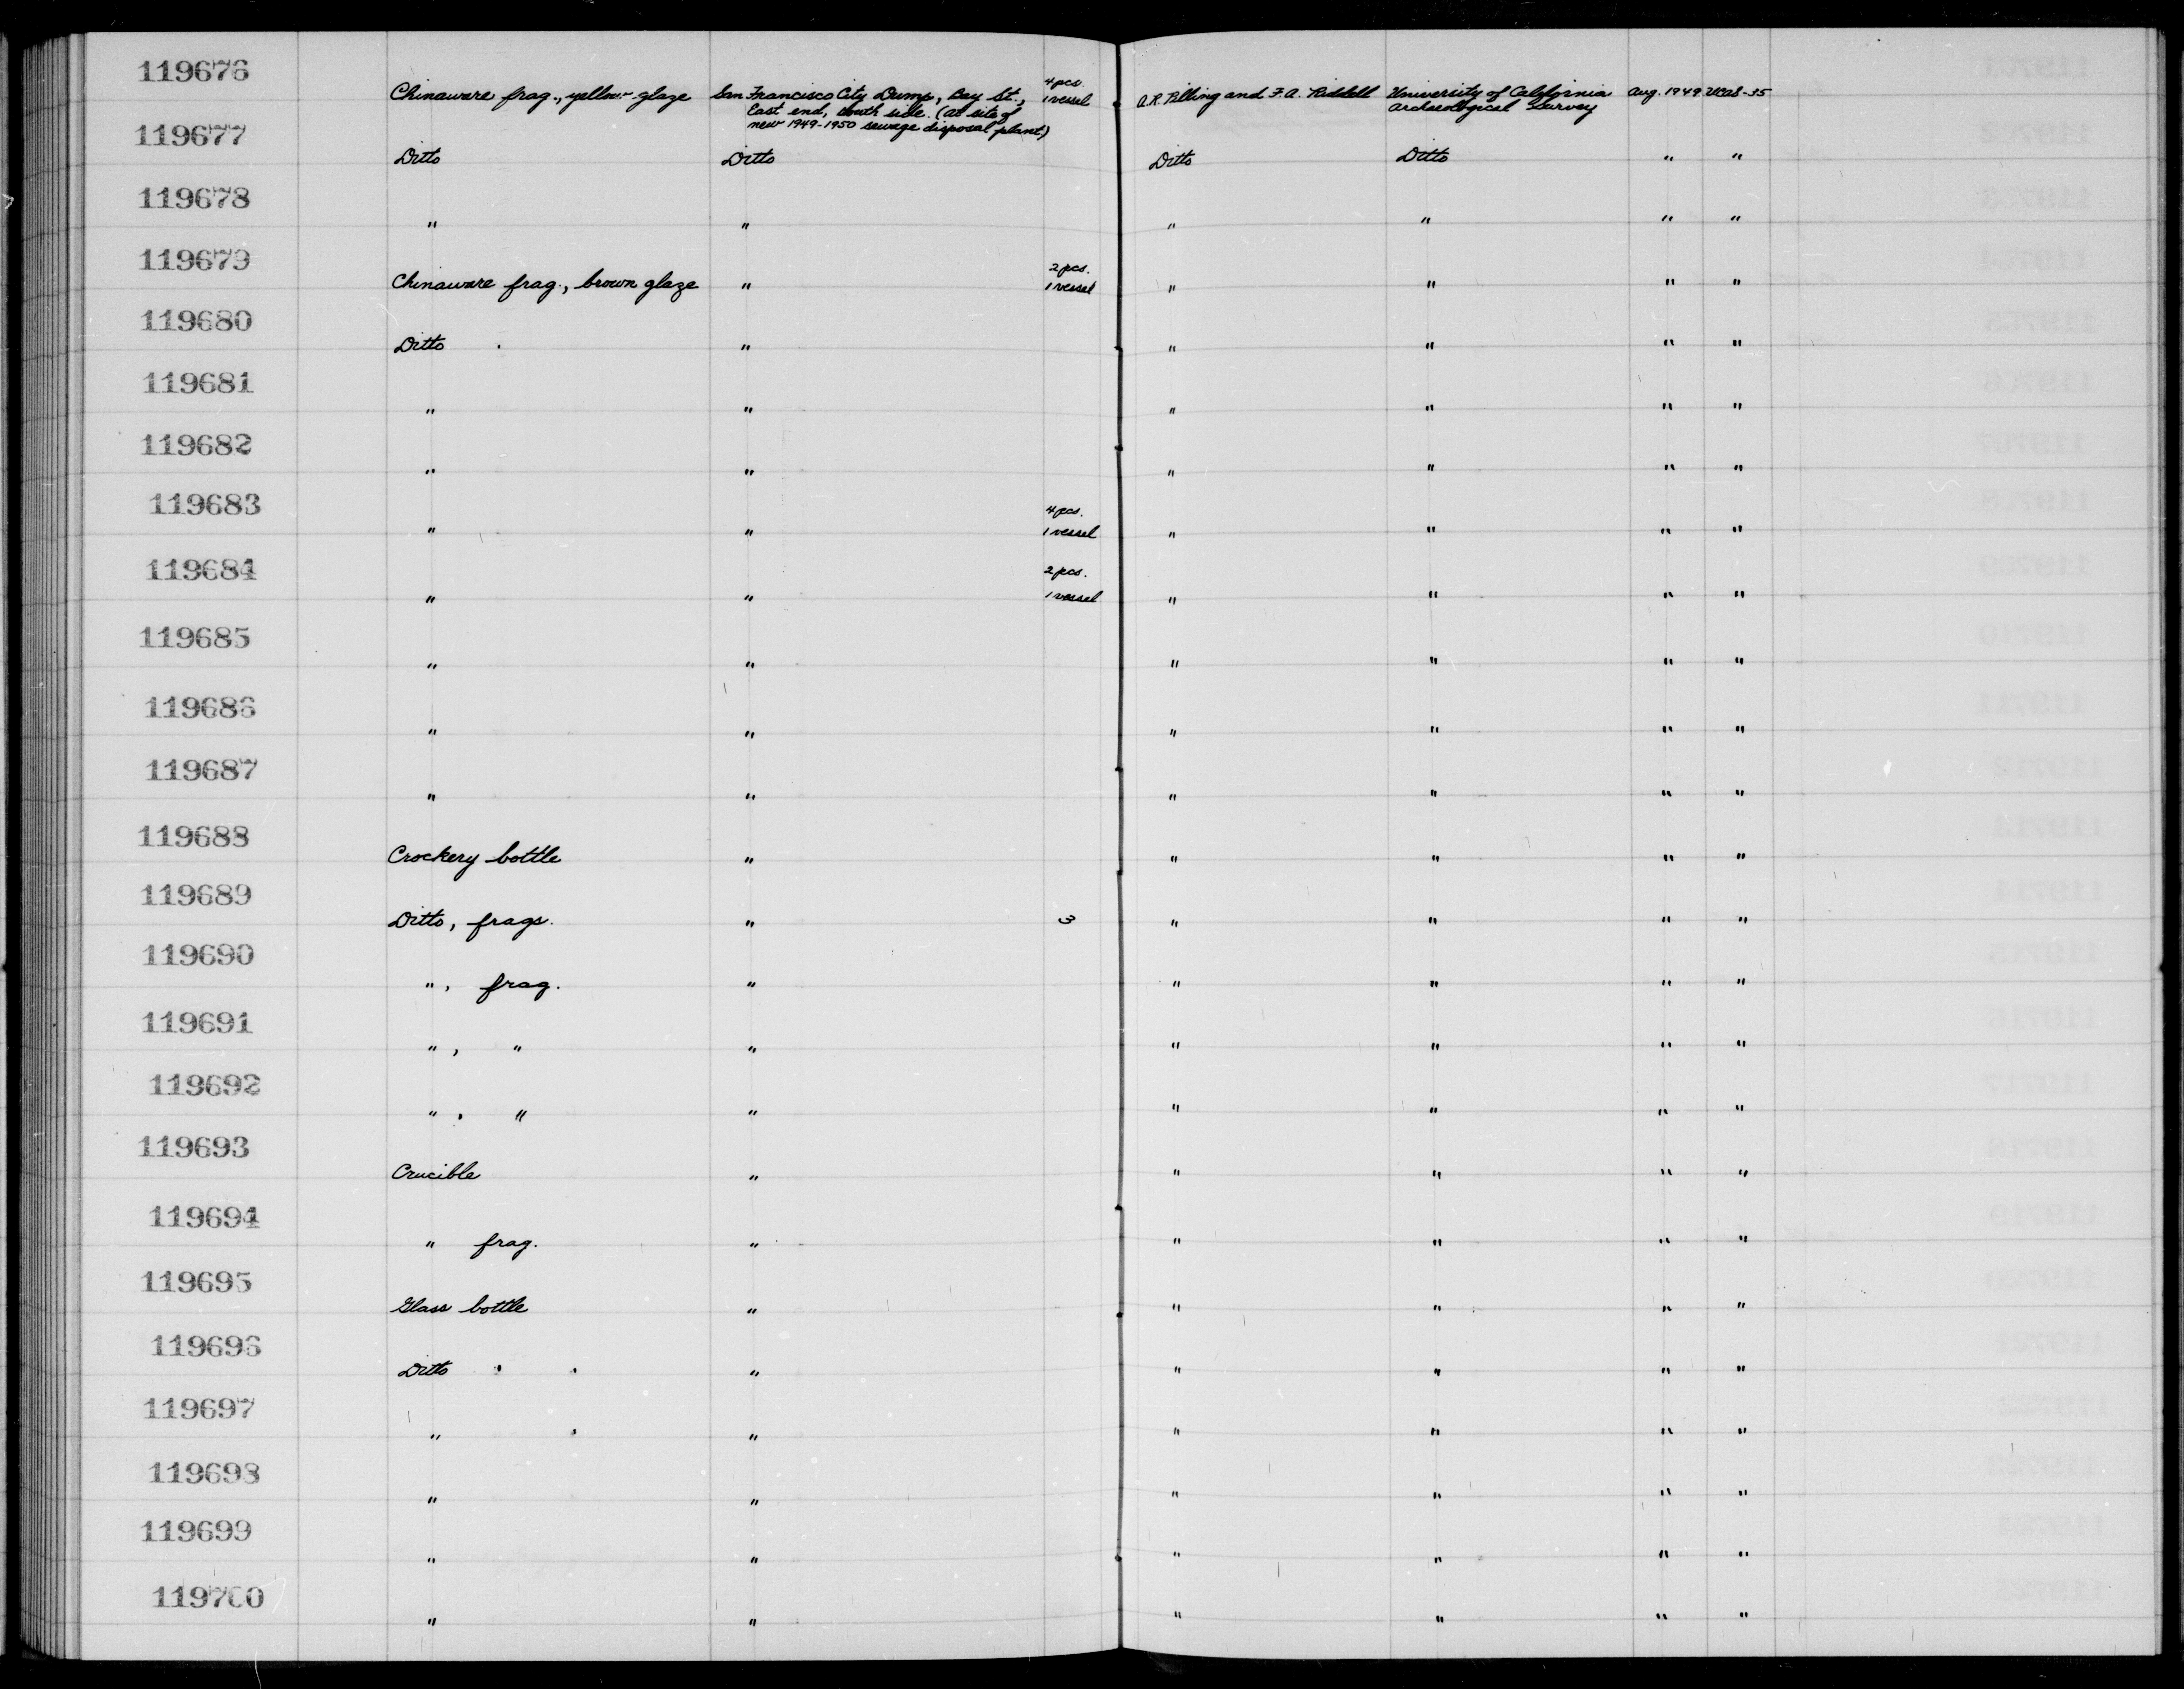 119676
Chinaware frag., yellow glaze San Francisco City Dump, Bay St., 4 pcs. 1 vessel A.R. Pilling and F.A. Riddell University of California Aug. 1949 UCAS-35
East end, south side. (at site of Archaeological Survey
new 1949-1950 sewage disposal plant)
119677
Ditto Ditto Ditto Ditto " "
119678
" " " " " "
119679
Chinaware frag., brown glaze " 2 pcs. 1 vessel " " " "
119680
Ditto " " " " "
119681
" " " " " "
119682
" " " " " "
119683
" " 4 pcs. 1 vessel " " " "
119684
" " 2 pcs. 1 vessel " " " "
119685
" " " " " "
119686
" " " " " "
119687
" " " " " "
119688
Crockery bottle " " " " "
119689
Ditto, frags. " 3 " " " "
119690
", frag. " " " " "
119691
", " " " " " "
119692
", " " " " " "
119693
Crucible " " " " "
119694
" frag. " " " " "
119695
Glass bottle " " " " "
119696
Ditto " " " " "
119697
" " " " " "
119698
" " " " " "
119699
" " " " " "
119700
" " " " " "